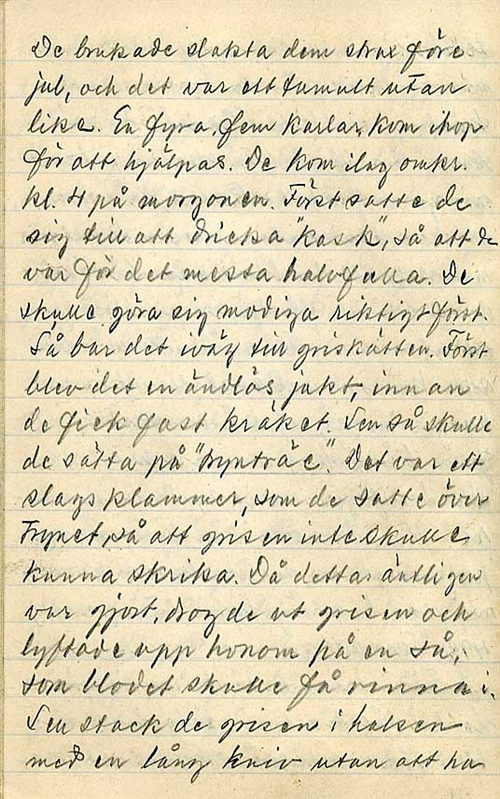 De brukade slakta dem strax före
jul, och det var ett tumult utan
like. En fyra, fem karlar, kom ihop
för att hjälpas. De kom ilag omkr.
kl. 4 på morgonen. Först satte de
sig till att dricka "kask", så att de
var för det mesta halvfulla. De
skulle göra sig modiga riktigt först.
Så bar det iväg till griskätten. Först
blev det en ändlös jakt, innan
de fick fast kräket. Sen så skulle
de sätta på "trynträe". Det var ett
slags klammer, som de satte över
trynet, så att grisen inte skulle
kunna skrika. Då detta äntligen
var gjort, drog de ut grisen och
lyftade upp honom på en så,
som blodet skulle få rinna i.
Sen stack de grisen i halsen
med en lång kniv utan att ha